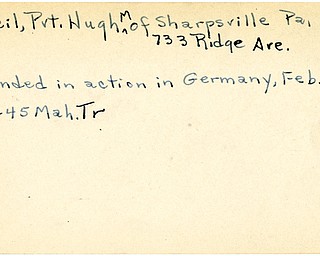 eil, Pvt. Hugh M of Sharpsville Pa,
733 Ridge Ave.
nded in action in Germany, Feb.
-45 Mah. Tr